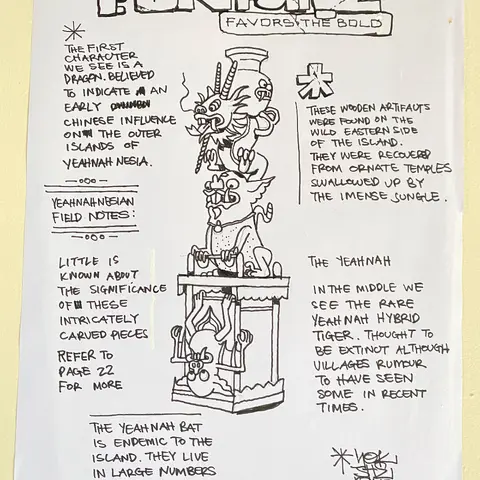 FORTUNE
FAVORS THE BOLD
THE FIRST
CHARACTER
WE SEE IS A
DRAGON. BELIEVED
TO INDICATE AN
EARLY
CHINESE INFLUENCE
ON THE OUTER
ISLANDS OF
YEAHNAHNESIA.
YEAHNAHNESIAN
FIELD NOTES:
LITTLE IS
KNOWN ABOUT
THE SIGNIFICANCE
OF THESE
INTRICATELY
CARVED PIECES
REFER TO
PAGE 22
FOR MORE
THESE WOODEN ARTIFACTS
WERE FOUND ON THE
WILD EASTERN SIDE
OF THE ISLAND.
THEY WERE RECOVERED
FROM ORNATE TEMPLES
SWALLOWED UP BY
THE IMENSE JUNGLE.
THE YEAHNAH
IN THE MIDDLE WE
SEE THE RARE
YEAHNAH HYBRID
TIGER. THOUGHT TO
BE EXTINCT ALTHOUGH
VILLAGES RUMOUR
TO HAVE SEEN
SOME IN RECENT
TIMES.
THE YEAHNAH BAT
IS ENDEMIC TO THE
ISLAND. THEY LIVE
IN LARGE NUMBERS